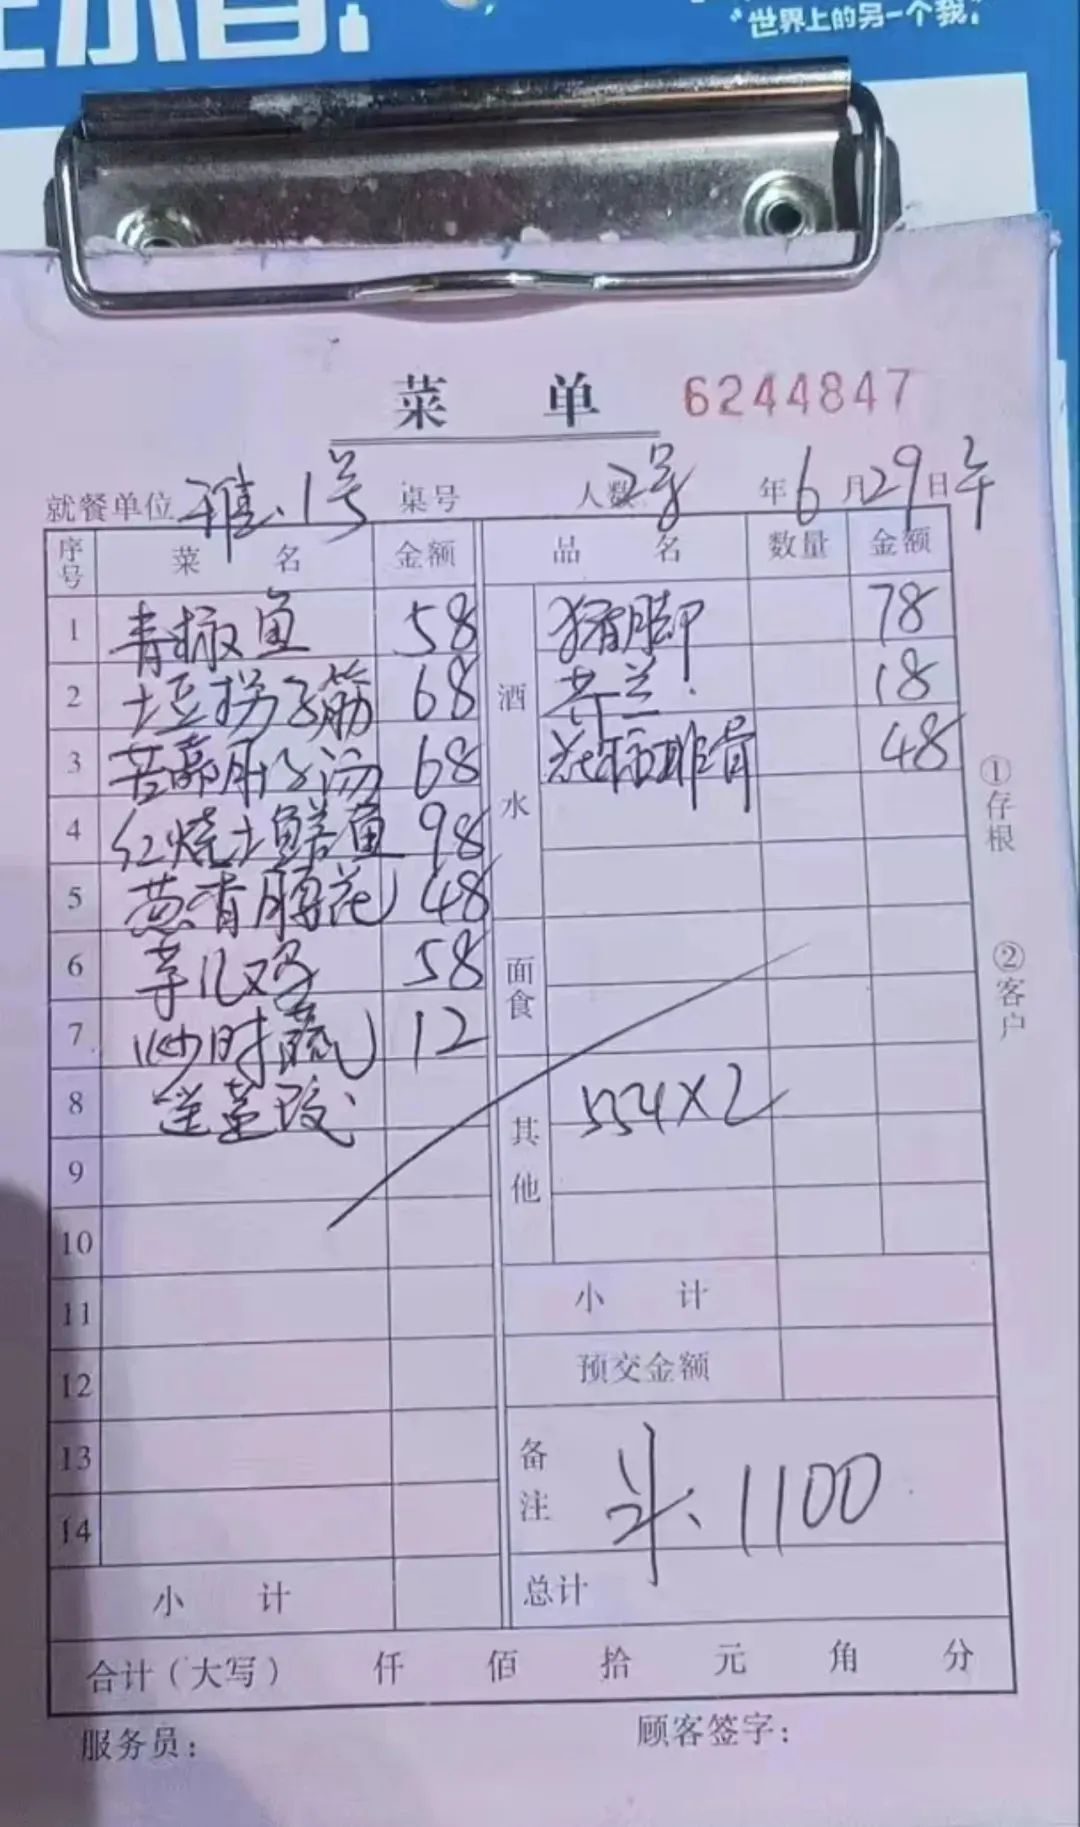 "世界上的另一个我."
菜 单 6244847
就餐单位 雅.1号 桌号 人数 2号 年6月29日午
序号 菜名 金额 品名 数量 金额
1 青椒鱼 58 酒水 猪脚 78
2 土豆拐子筋 68 芥兰 18
3 苦 肚子汤 68 排骨 48
4 红烧土鳝鱼 98
5 葱香腰花 48
6 芋儿鸡 58 面食
7 炒时蔬 12
8 其他 554×2
9
10
11 小计
12 预交金额
13 备注 1100
14
小计 总计
合计(大写) 仟 佰 拾 元 角 分
服务员: 顾客签字:
①存根
②客户